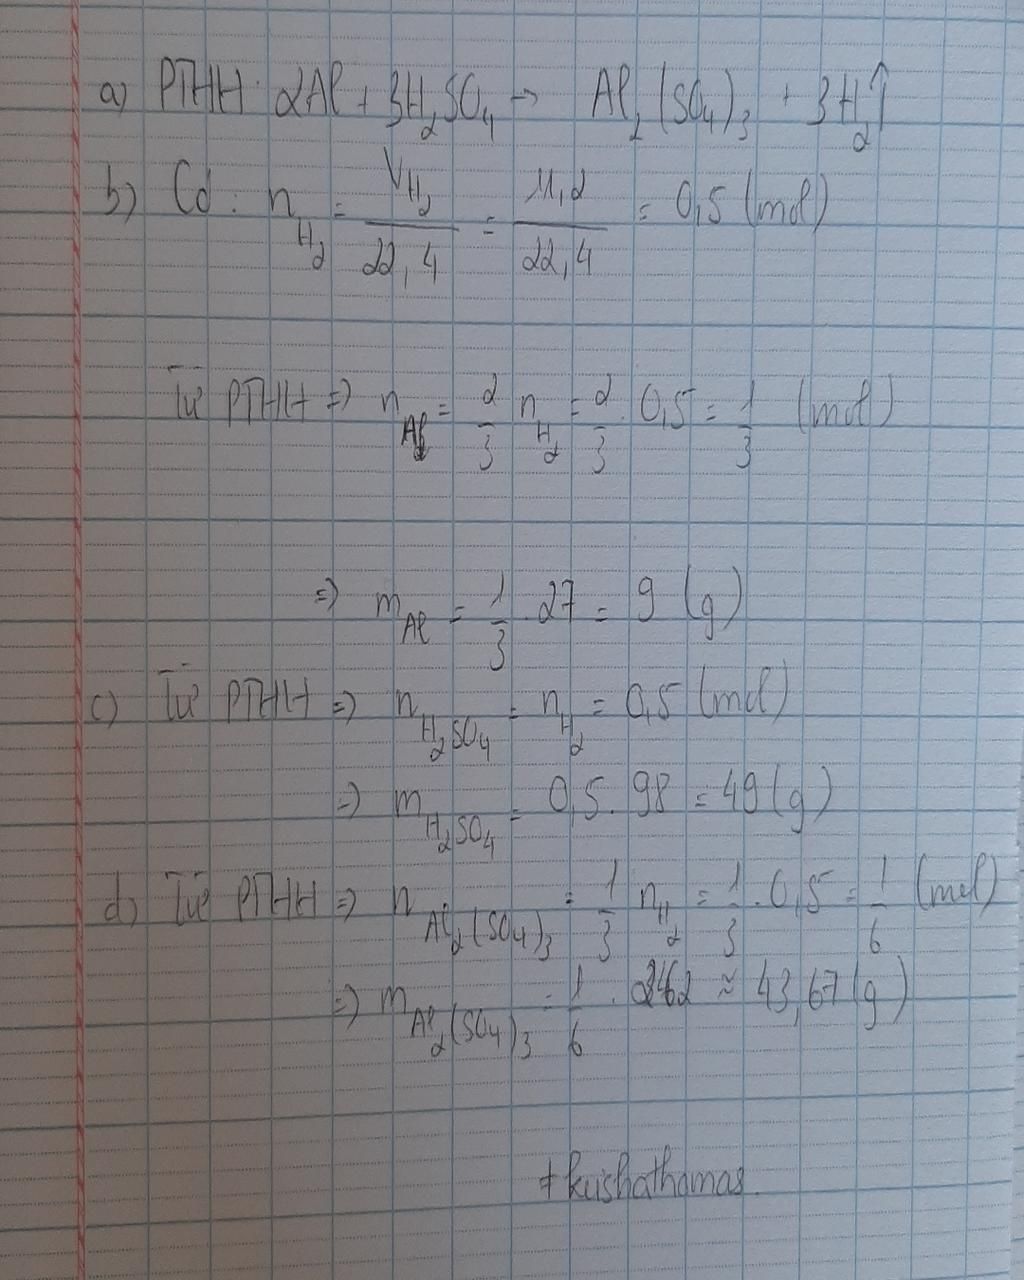 a) PTHH: 2Al + 3H₂SO₄ → Al₂(SO₄)₃ + 3H₂↑
b) Có: n_H₂ = V_H₂/22,4 = 11,2/22,4 = 0,5 (mol)
Từ PTHH => n_Al = 2/3 n_H₂ = 2/3 . 0,5 = 1/3 (mol)
=> m_Al = 1/3 . 27 = 9 (g)
c) Từ PTHH => n_H₂SO₄ = n_H₂ = 0,5 (mol)
=> m_H₂SO₄ = 0,5 . 98 = 49 (g)
d) Từ PTHH => n_Al₂(SO₄)₃ = 1/3 n_H₂ = 1/3 . 0,5 = 1/6 (mol)
=> m_Al₂(SO₄)₃ = 1/6 . 262 ≈ 43,67 (g)